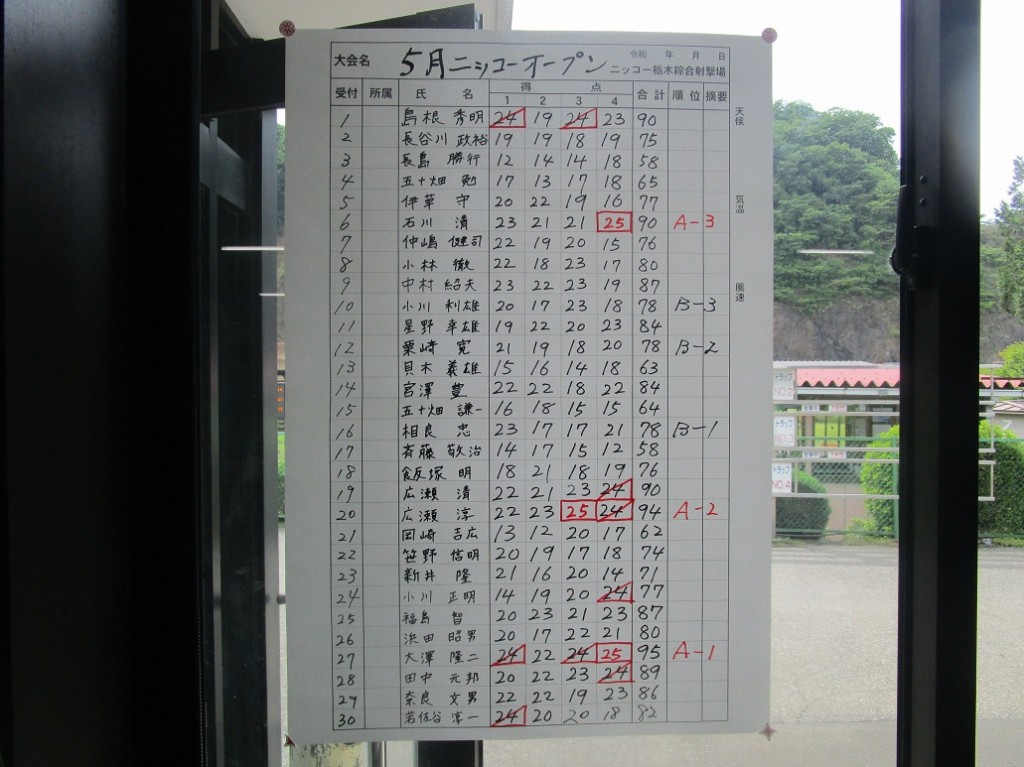 大会名 5月ニッコーオープン 令和 年 月 日
ニッコー栃木綜合射撃場
受付 所属 氏名 得点 合計 順位 摘要
1 2 3 4
1 島根 秀明 24 19 24 23 90
2 長谷川 政裕 19 19 18 19 75
3 長島 勝行 12 14 14 18 58
4 五十畑 勉 17 13 17 18 65
5 伊草 守 20 22 19 16 77
6 石川 清 23 21 21 25 90 A-3
7 仲嶋 健司 22 19 20 15 76
8 小林 徹 22 18 23 17 80
9 中村 紹夫 23 22 23 19 87
10 小川 利雄 20 17 23 18 78 B-3
11 星野 幸雄 19 22 20 23 84
12 粟崎 寛 21 19 18 20 78 B-2
13 貝木 義雄 15 16 14 18 63
14 宮澤 豊 22 22 18 22 84
15 五十畑 謙一 16 18 15 15 64
16 相良 忠 23 17 17 21 78 B-1
17 斉藤 敬治 14 17 15 12 58
18 飯塚 明 18 21 18 19 76
19 広瀬 清 22 21 23 24 90
20 広瀬 淳 22 23 25 24 94 A-2
21 岡崎 吉広 13 12 20 17 62
22 笹野 信明 20 19 17 18 74
23 新井 隆 21 16 20 14 71
24 小川 正明 14 19 20 24 77
25 福島 智 20 23 21 23 87
26 浜田 昭男 20 17 22 21 80
27 大澤 隆二 24 22 24 25 95 A-1
28 田中 元邦 20 22 23 24 89
29 奈良 文男 22 22 19 23 86
30 若佐谷 淳一 24 20 20 18 82
天候
気温
風速
トラップ
NO.2
トラップ
NO.3
トラップ
NO.4